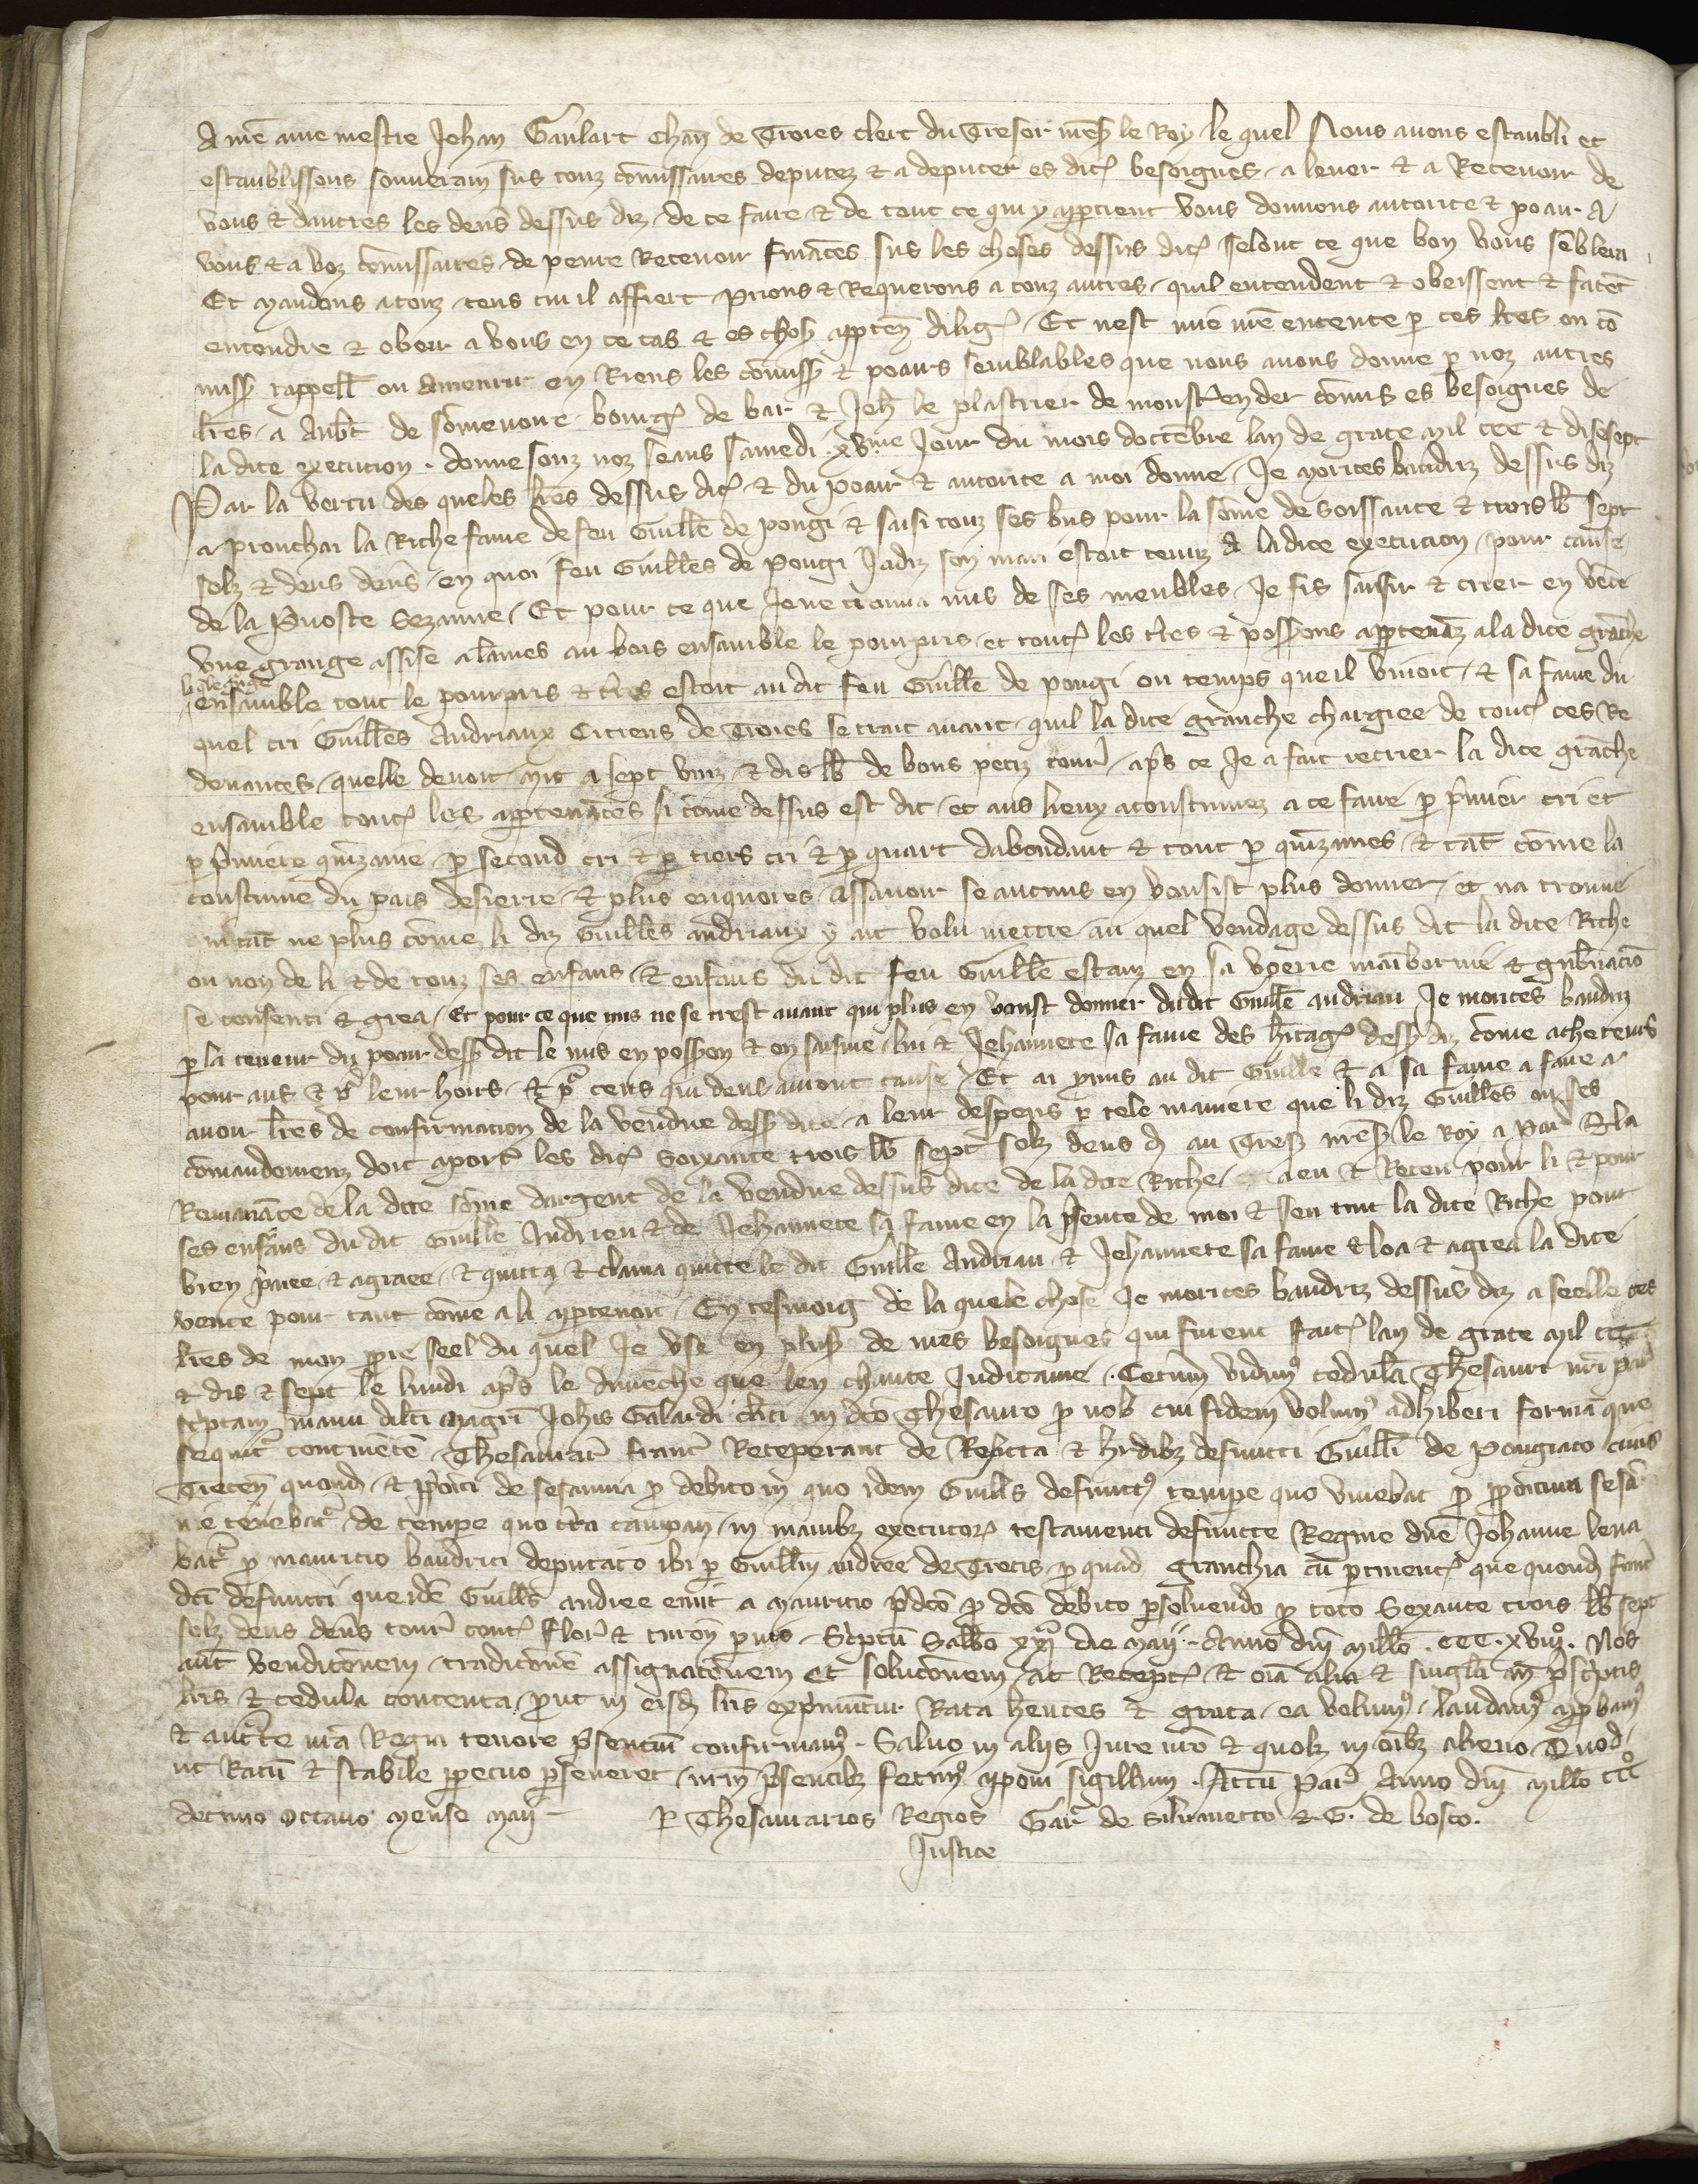 A nr̄e ame mestre Jehan Gaulart chan̄ de Troies clerc du Tresor nr̄es le Roy le quel Nous auons estaubli et
estaublissons souuerain sus touz com̄issaires deputez et a deputer es dict besoignes a leuer et a Receuoir de
vous et dautres les den̄s dessus diz de ce faire et de tout ce qui y apptient vous donnons autorite et poair A
vous et a voz com̄issaires de penre Receuoir fināces sus les choses dessus dict selont ce que bon vous sēblera
Et mandons a touz ceus cui il affiert prions et Requerons a touz autres quil entendent et obeissent et facēt
entendre et obeir a vous en ce cas et es chos apptēn dilig Et nest mie nr̄e entente p ces lr̄es ou cō
miss rappell ou amenrir en Riens les com̄iss et poairs semblables que nous auons donne p noz autres
lr̄es a Aub̄t de som̄euoire bourg de bar et Jeh̄ le plastrier de monstrender com̄is es besoignes de
la dite execucion donne souz noz seaus samedi xvme Jour du mois doctēbre lan de grace mil ccc et disesept
Par la vertu des queles lr̄es dessus dict et du poair et autorite a moi donne Je morices baudriz dessus diz
aprouchai la Riche fame de feu Guill̄e de pongi et saisi touz ses bīs pour la som̄e de soissante et trois lb̄ sept
solz et deus den̄s en quoi feu Guill̄es de pongi Jadiz son mari estoit tenuz A ladite execucion pour cause
de la Puoste Sezanne Et pour ce que Je ne trouua nus de ses meubles Je fis saisir et crier en vēte
vne grange assise a lames au bois ensamble le pourpris et tout les tr̄es et possons apptenāz a la dite grāche
la q̄le grāge
ensamble tout le pourpris et tr̄es estoit au dit feu Guill̄e de pongi ou temps que il viuoit et sa fame du
quel cri Guill̄es Andriaux Citiens de Troies se trait auant quil la dite granche chargiee de tout ces Re
deuances quelle deuoit mit a sept vinz et dis lb̄ de bons petiz tour ap̄s ce Je a fait recrier la dite grāche
ensamble tout les apptenāces si com̄e dessus est dit et aus lieux acoustumez a ce faire p p̄mier cri et
p p̄miere quīzaine p second cri et p tiers cri et p quart dabondant et tout p quīzaines et tāt com̄e la
coustume du pais desierre et plus enquores assauoir se aucuns en vousist plus donner et na trouue
qui tāt ne plus com̄e li diz Guill̄es andriaux y ait volu mettre au quel vendage dessus dit la dite Riche
ou non de li et de touz ses enfans et enfans du dit feu Guill̄e estanz en sa vorie mainbornie et gub̄nacio
se consenti et grea Et pour ce que nus ne se trest auant qui plus en vousit donner du dit Guill̄e andriau Je morices baudriz
p la teneur du poair dess dit le mis en posson et en saisine lui et Jehannete sa fame des hitag dess diz com̄e acheteurs
pour aus et po' leur hoirs et po' ceus qui deus auront cause Et ai p̄mis au dit Guill̄e et a sa fame a faire a
auoir lr̄es de confirmacion de la vendue dess dite a leur despens p tele maniere que li diz Guill̄es ou ses
com̄andemenz doit aporter les dict Soixante trois lb̄ sept solz deus d̄ au Tres nr̄es le Roy a par Et la
Remanāce de la dite som̄e dargent de la vendue dessus dite de la dite Riche a eu et Receu pour li et pour
ses enfāns du dit Guill̄e Andrieu et de Jehannete sa fame en la p̄sente de moi et sen tint la dite Riche pour
bien paiee et agraee et quitta et clama quitte le dit Guill̄e Andriau et Jehannete sa fame et loa et agrea la dite
vente pour tant com̄e a li apptenoit En tesmoig de la quele chose Je morices baudriz dessus diz a seelle ces
lr̄es de mon ppre seel du quel Je vse en plus de mes besoignes qui furent fait lan de grace mil ccc
et dis et sept le lundi ap̄s le dimēche que len chante Judicame Ceterum vidim9 cedulā Thesaurī nr̄i par
scriptam manu dilc̄i magr̄i Joh̄is Galardi cl̄ici in dc̄o Thesauro p nob cui fidem volum9 adhiberi formā que
sequit' continētē Thesaurar' franc' Receperant de Relicta et h̄dibz defuncti Guill̄i de pongiaco ciuis
Trecēn quond et p̄poiti de sesannia p debito in quo idem Guill̄s defunct9 tempe quo viuebat p p̄poitura sesā
nie tēnebat' de tempe quo tr̄a campan in manibz executor testamenti defuncte Regine dn̄e Johanne leua
bat' p mauricio baudrici deputato ibi p Guill̄m andree de Trecis p quad granchia cū ptinent que quond fuit
dc̄i defuncti que idē Guill̄s andree emit a mauricio p̄dc̄o p dc̄o debito psoluendo p toto Sexante trois lb̄ sept
solz deus den̄s tour' cont' flor et turoñ puis Scptū Sabb̄o xxa die maij Anno dn̄i mill̄o ccc xviijo Nos
aūt vendic̄onem tradic̄onē assignac̄onem et soluc̄onem ac Recept et oīa alia et singl̄a in p̄scptis
lr̄is et cedula contenta put in eisd lr̄is exp̄muntur Rata hentes et grata ea volum9 laudam9 appbam9
et auc̄te nr̄a Regia tenore p̄sentiū confirmam9 Saluo in aliis Jure nr̄o et quolz in oīibz alieno Quod
ut Ratū et stabile ppetuo pseueret nr̄m p̄sentibz fecim9 apponi sigillum Actū par Anno dn̄i mill̄o ccco
decimo octauo mense maij
p Thesaurarios Regios Gar de Siluanetto et G. de bosco.
Justice